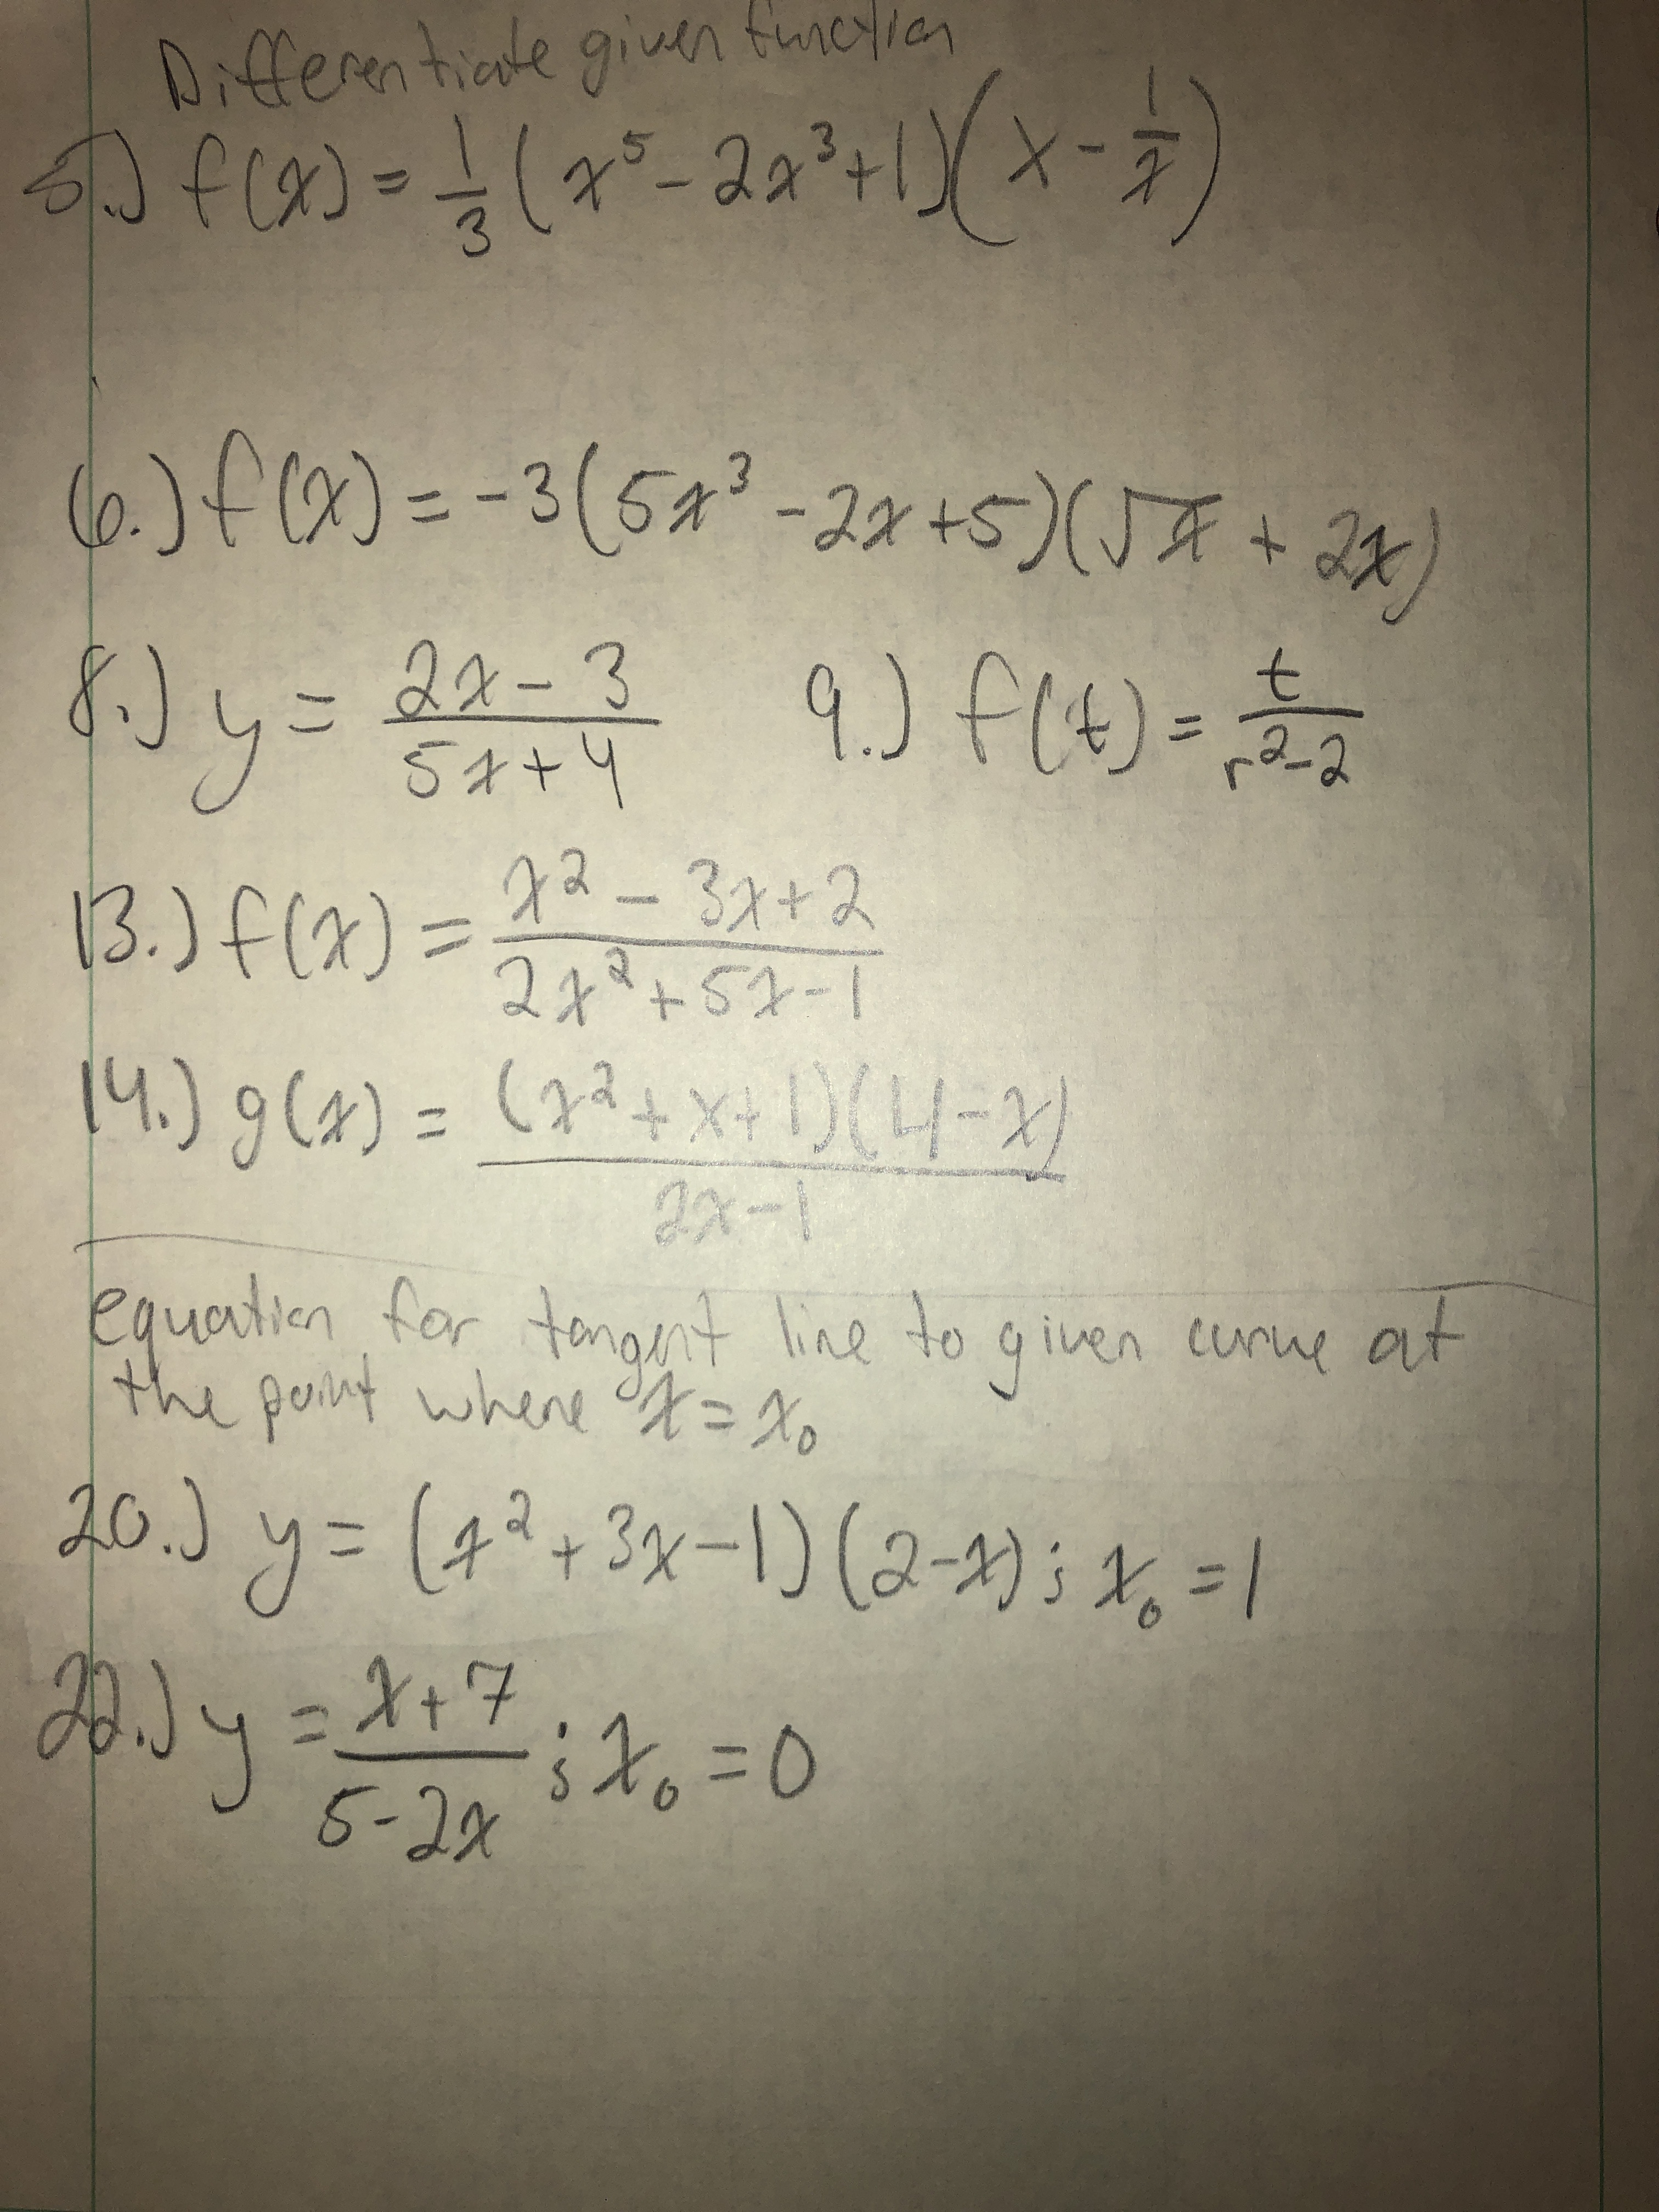 Differentiate given function
5.) f(x) = 1/3 (x⁵ - 2x³ + 1)(x - 1/x)
6.) f(x) = -3(5x³ - 2x + 5)(√x + 2x)
8.) y = (2x - 3)/(5x + 4)   9.) f(t) = t/(r² - 2)
13.) f(x) = (x² - 3x + 2)/(2x² + 5x - 1)
14.) g(x) = (x² + x + 1)(4 - x)/(2x - 1)
equation for tangent line to given curve at
the point where x = x₀
20.) y = (x² + 3x - 1)(2 - x); x₀ = 1
22.) y = (x + 7)/(5 - 2x); x₀ = 0